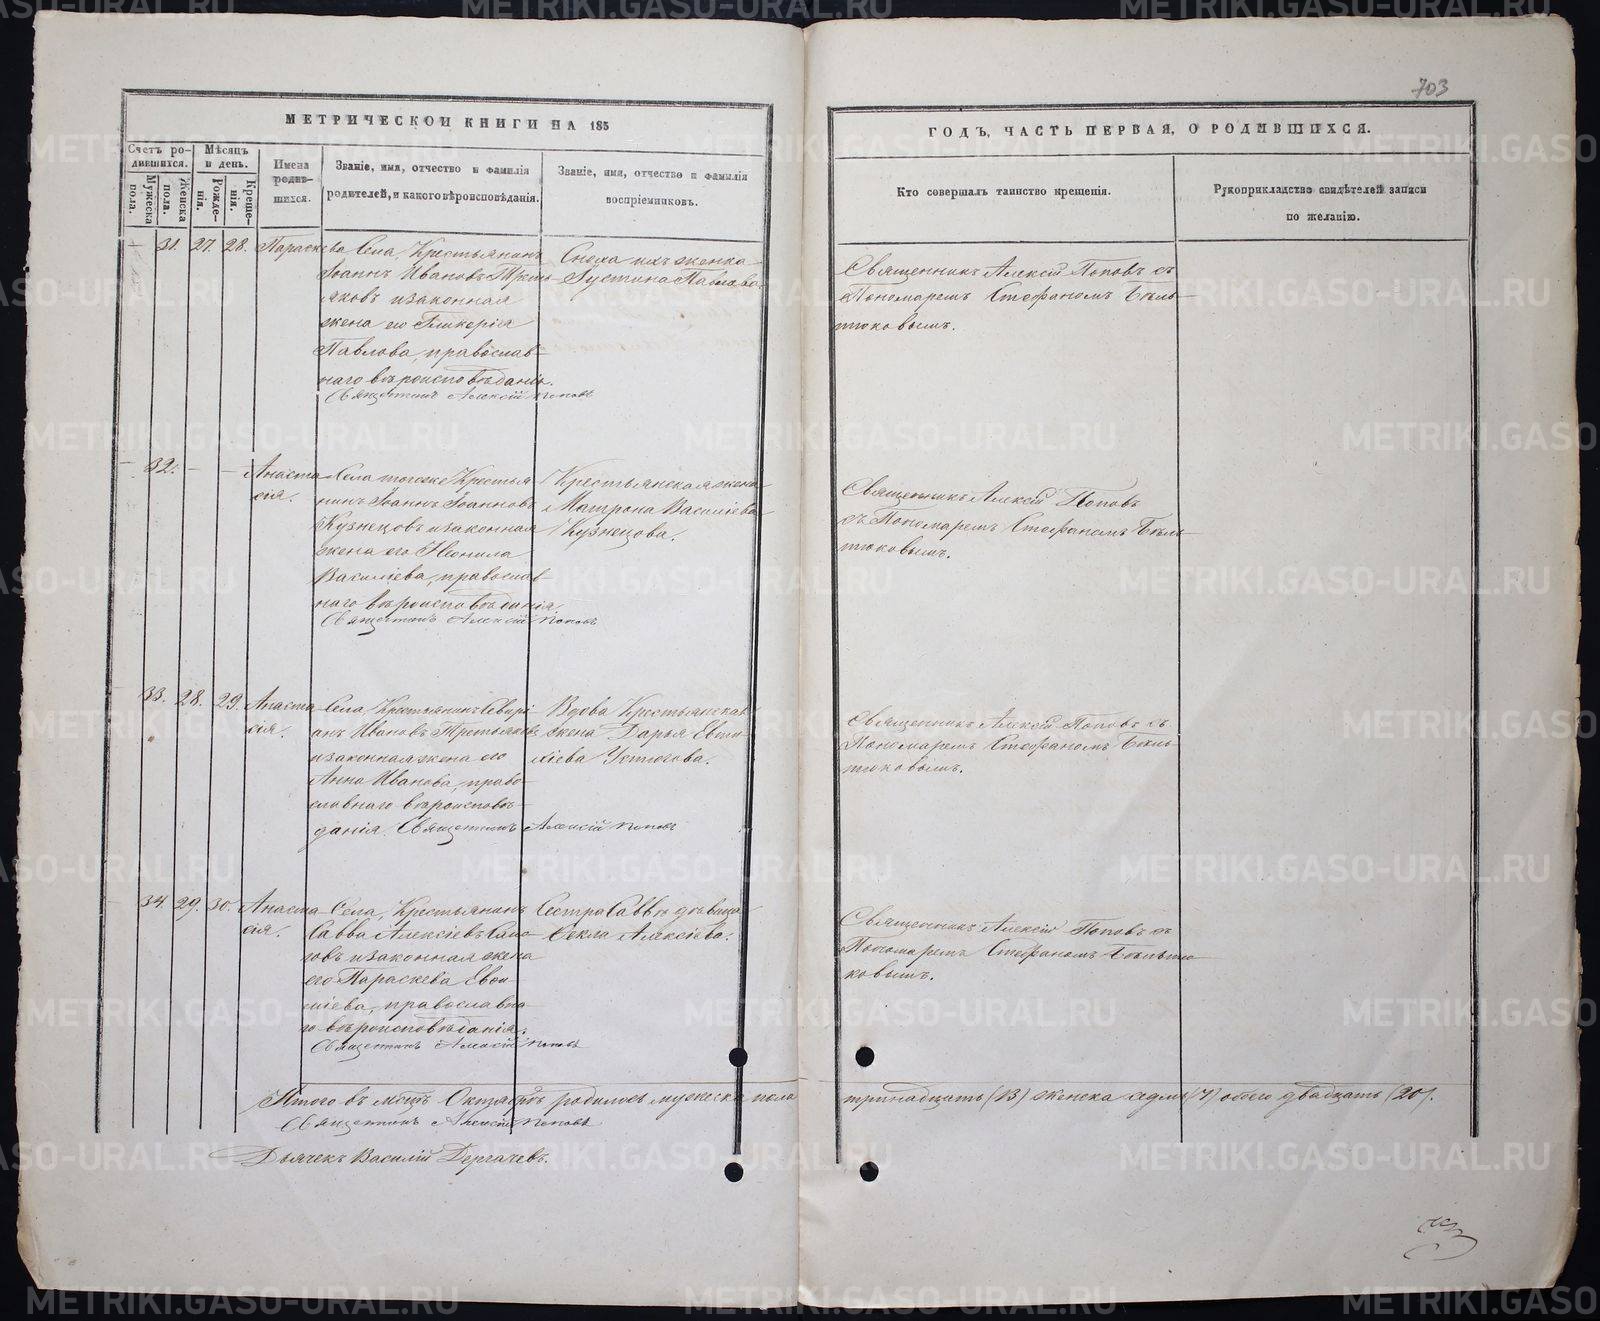 703
МЕТРИЧЕСКОЙ КНИГИ НА 185
ГОДЪ, ЧАСТЬ ПЕРВАЯ, О РОДИВШИХСЯ.
Счетъ родившихся.
Мужеска пола.
Женска пола.
Мѣсяцъ и день.
Рожденія.
Крещенія.
Имена родившихся.
Званіе, имя, отчество и фамилія
родителей, и какого вѣроисповѣданія.
Званіе, имя, отчество и фамилія
воспріемниковъ.
Кто совершалъ таинство крещенія.
Рукоприкладство свидѣтелей записи
по желанію.
31. 27. 28. Параскева
Села, Крестьянинъ
Іоаннъ Ивановъ Треть-
яковъ и законная
жена его Гликерія
Павлова, православ-
наго вѣроисповѣданія.
Священникъ Алексій Поповъ
Сноха ихъ женка
Іустина Павлова.
Священникъ Алексій Поповъ съ
Пономаремъ Стефаномъ Бѣль-
тюковымъ.
32. — — Анаста
сія.
Села тогоже Крестья
нинъ Іоаннъ Іоанновъ
Кузнецовъ и законная
жена его Неонила
Василіева, православ-
наго вѣроисповѣданія.
Священникъ Алексій Поповъ
Крестьянская жена
Матрона Василіева
Кузнецова.
Священникъ Алексій Поповъ
съ Пономаремъ Стефаномъ Бѣль-
тюковымъ.
33. 28. 29. Анаста
сія.
Села, Крестьянинъ Севирі-
анъ Ивановъ Третьяковъ
и законная жена его
Анна Иванова, право-
славнаго вѣроисповѣ-
данія. Священникъ Алексій Поповъ
Вдова Крестьянская
жена Дарья
Устюгова.
Священникъ Алексій Поповъ съ
Пономаремъ Стефаномъ Бѣль-
тюковымъ.
34. 29. 30. Анаста
сія.
Села, Крестьянинъ
Савва Алексіевъ
и законная жена
его Параскева
православна-
го вѣроисповѣданія.
Священникъ Алексій Поповъ
Сестра Саввѣ дѣвица
Ѳекла Алексіева.
Священникъ Алексій Поповъ съ
Пономаремъ Стефаномъ Бѣльтю
ковымъ.
Итого въ мсцѣ Октябрѣ родилось мужеска пола тринадцать (13) женска седмь (7) обоего двадцать (20).
Священникъ Алексій Поповъ
Дьячекъ Василій Дергачевъ.
METRIKI.GASO-URAL.RU